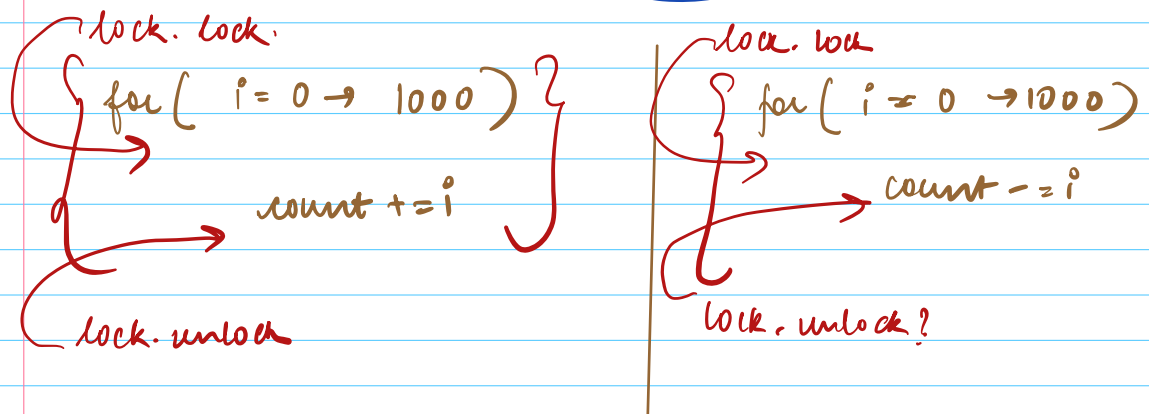 lock. lock.
for( i = 0 → 1000)
count += i
lock. unlock
lock. lock
for( i = 0 → 1000)
count -= i
lock. unlock?